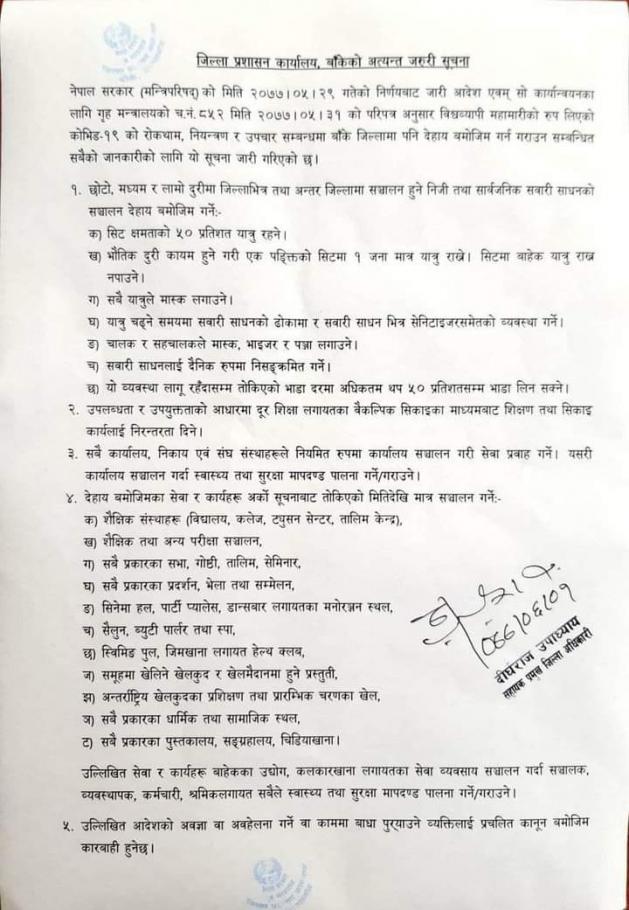 जिल्ला प्रशासन कार्यालय, बाँकेको अत्यन्त जरुरी सूचना
नेपाल सरकार (मन्त्रिपरिषद्) को मिति २०७७।०५।२९ गतेको निर्णयबाट जारी आदेश एवम् सो कार्यान्वयनका
लागि गृह मन्त्रालयको च.नं. ८५२ मिति २०७७।०५।३१ को परिपत्र अनुसार विश्वव्यापी महामारीको रुप लिएको
कोभिड-१९ को रोकथाम, नियन्त्रण र उपचार सम्बन्धमा बाँके जिल्लामा पनि देहाय बमोजिम गर्न गराउन सम्बन्धित
सबैको जानकारीको लागि यो सूचना जारी गरिएको छ।
१. छोटो, मध्यम र लामो दुरीमा जिल्लाभित्र तथा अन्तर जिल्लामा सञ्चालन हुने निजी तथा सार्वजनिक सवारी साधनको
सञ्चालन देहाय बमोजिम गर्ने:-
क) सिट क्षमताको ५० प्रतिशत यात्रु रहने।
ख) भौतिक दुरी कायम हुने गरी एक पङ्क्तिको सिटमा १ जना मात्र यात्रु राख्ने। सिटमा बाहेक यात्रु राख्न
नपाउने।
ग) सबै यात्रुले मास्क लगाउने।
घ) यात्रु चढ्ने समयमा सवारी साधनको ढोकामा र सवारी साधन भित्र सेनिटाइजरसमेतको व्यवस्था गर्ने।
ङ) चालक र सहचालकले मास्क, भाइजर र पञ्जा लगाउने।
च) सवारी साधनलाई दैनिक रुपमा निसङ्क्रमित गर्ने।
छ) यो व्यवस्था लागू रहँदासम्म तोकिएको भाडा दरमा अधिकतम थप ५० प्रतिशतसम्म भाडा लिन सक्ने।
२. उपलब्धता र उपयुक्तताको आधारमा दूर शिक्षा लगायतका बैकल्पिक सिकाइका माध्यमबाट शिक्षण तथा सिकाइ
कार्यलाई निरन्तरता दिने।
३. सबै कार्यालय, निकाय एवं संघ संस्थाहरूले नियमित रुपमा कार्यालय सञ्चालन गरी सेवा प्रवाह गर्ने। यसरी
कार्यालय सञ्चालन गर्दा स्वास्थ्य तथा सुरक्षा मापदण्ड पालना गर्ने/गराउने।
४. देहाय बमोजिमका सेवा र कार्यहरू अर्को सूचनाबाट तोकिएको मितिदेखि मात्र सञ्चालन गर्ने:-
क) शैक्षिक संस्थाहरू (विद्यालय, कलेज, ट्युसन सेन्टर, तालिम केन्द्र),
ख) शैक्षिक तथा अन्य परीक्षा सञ्चालन,
ग) सबै प्रकारका सभा, गोष्ठी, तालिम, सेमिनार,
घ) सबै प्रकारका प्रदर्शन, भेला तथा सम्मेलन,
ङ) सिनेमा हल, पार्टी प्यालेस, डान्सबार लगायतका मनोरञ्जन स्थल,
च) सैलुन, ब्युटी पार्लर तथा स्पा,
छ) स्विमिङ पुल, जिमखाना लगायत हेल्थ क्लब,
ज) समूहमा खेलिने खेलकुद र खेलमैदानमा हुने प्रस्तुती,
झ) अन्तर्राष्ट्रिय खेलकुदका प्रशिक्षण तथा प्रारम्भिक चरणका खेल,
ञ) सबै प्रकारका धार्मिक तथा सामाजिक स्थल,
ट) सबै प्रकारका पुस्तकालय, सङ्ग्रहालय, चिडियाखाना।
०७७/०६/०१
दीर्घराज उपाध्याय
सहायक प्रमुख जिल्ला अधिकारी
उल्लिखित सेवा र कार्यहरू बाहेकका उद्योग, कलकारखाना लगायतका सेवा व्यवसाय सञ्चालन गर्दा सञ्चालक,
व्यवस्थापक, कर्मचारी, श्रमिकलगायत सबैले स्वास्थ्य तथा सुरक्षा मापदण्ड पालना गर्ने/गराउने।
५. उल्लिखित आदेशको अवज्ञा वा अवहेलना गर्ने वा काममा बाधा पुर्‍याउने व्यक्तिलाई प्रचलित कानून बमोजिम
कारबाही हुनेछ।